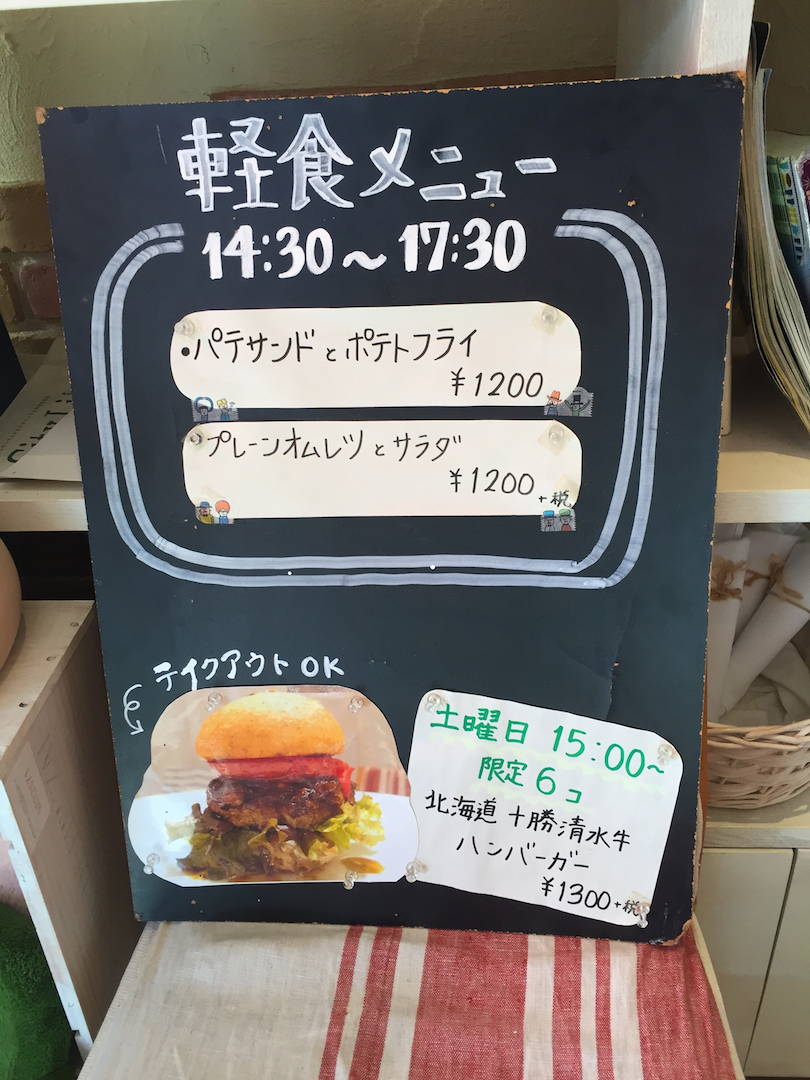 軽食メニュー
14:30～17:30
•パテサンドとポテトフライ
¥1200
プレーンオムレツとサラダ
¥1200+税
テイクアウトOK
土曜日 15:00~
限定6コ
北海道十勝清水牛
ハンバーガー
¥1300+税